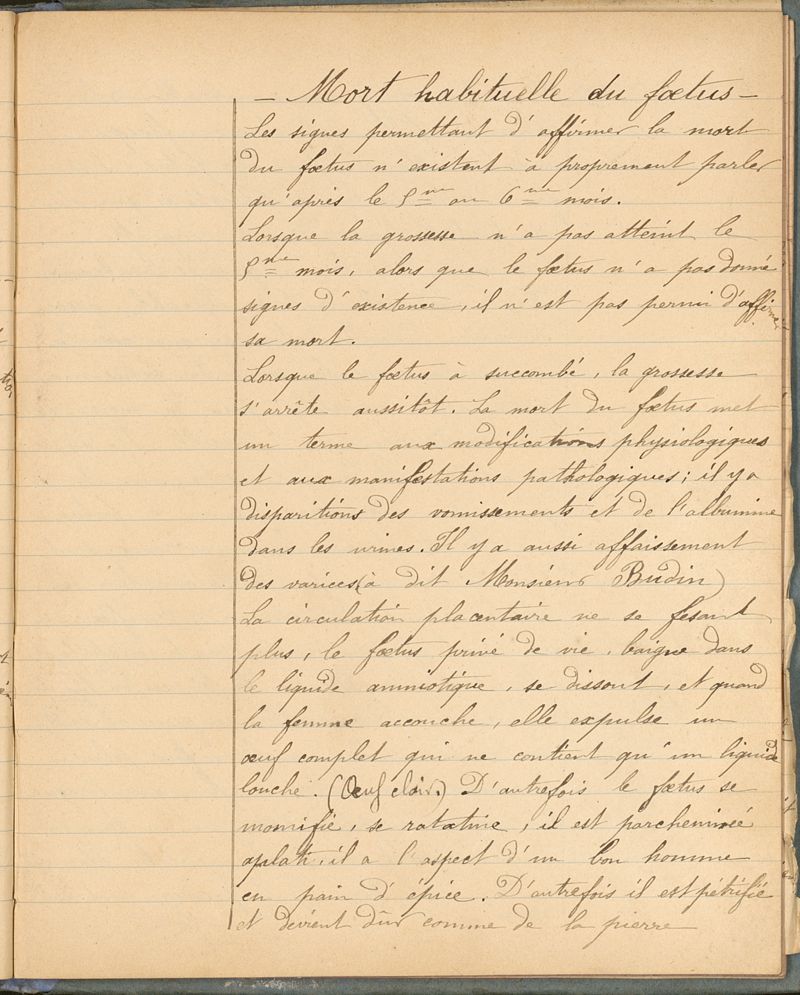 — Mort habituelle du fœtus —
Les signes permettant d'affirmer la mort
du fœtus n'existent à proprement parler
qu'après le 5me ou 6me mois.
Lorsque la grossesse n'a pas atteint le
5me mois, alors que le fœtus n'a pas donné
signes d'existence, il n'est pas permi d'affirmer
sa mort.
Lorsque le fœtus à succombé, la grossesse
s'arrête aussitôt. La mort du fœtus met
un terme aux modifications physiologiques
et aux manifestations pathologiques; il y a
disparitions des vomissements et de l'albumine
dans les urines. Il y a aussi affaissement
des varices (à dit Monsieur Budin)
La circulation placentaire ne se fesant
plus, le fœtus privé de vie, baigne dans
le liquide amniotique, se dissout, et quand
la femme accouche, elle expulse un
œuf complet qui ne contient qu'un liquide
louche. (Œuf clair.) D'autrefois le fœtus se
momifie, se ratatine, il est parcheminée
aplati, il a l'aspect d'un bon homme
en pain d'épice. D'autrefois il est pétrifié
et devient dûr comme de la pierre